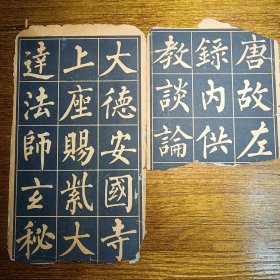 唐故左
錄內供
教談論
大德安國寺
上座賜紫大
達法師玄秘